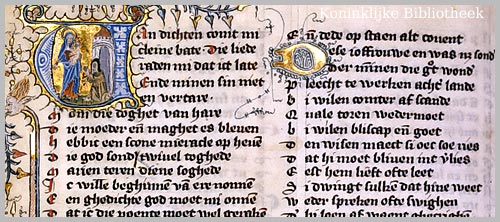 Koninklijke Bibliotheek
Van dichten comt mi
cleine bate. Die liede
raden mi dat ict late
Ende minen sin niet
en vertare.
om die doghet van hare
ie moeder eñ maghet es bleuen
ebbic een scone mieracle op heuē
ie god sond' twiuel toghede
arien teren diene soghede
c wille beghinnen vā ere nonnen
en ghedichte god moet mi onnen
at ic die poente moet wel geraken
E ñ dede op staen alt couent
ese ioffrouwe en was nz sond
der minnen die gt' wond
P leecht te werken acht' lande
b i wilen comter af scande
Q uale toren wedermoet
b i wilen bliscap eñ goet
D en wisen maect si oec soe ries
D at hi moet bliuen int v'lies
E est hem lieft ofte leet
S i dwingt sulkē dat hine weet
W eder spreken ofte swighen
hi loon af waent ghecrighen